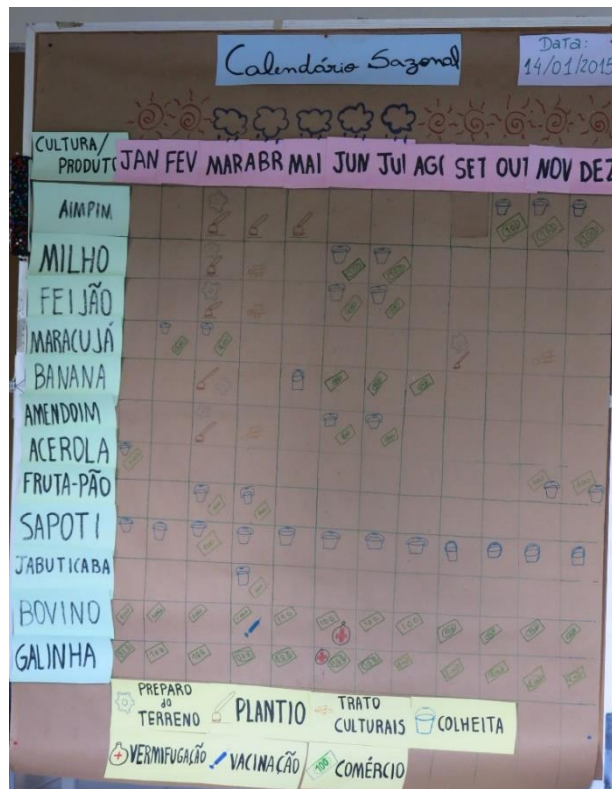 Calendário Sazonal
Data:
14/01/2015
CULTURA/
PRODUTO
JAN FEV MAR ABR MAI JUN JUL AGO SET OUT NOV DEZ
AIMPIM
MILHO
FEIJÃO
MARACUJÁ
BANANA
AMENDOIM
ACEROLA
FRUTA-PÃO
SAPOTI
JABUTICABA
BOVINO
GALINHA
PREPARO
do
TERRENO
PLANTIO
TRATO
CULTURAIS
COLHEITA
VERMIFUGAÇÃO
VACINAÇÃO
100
COMÉRCIO